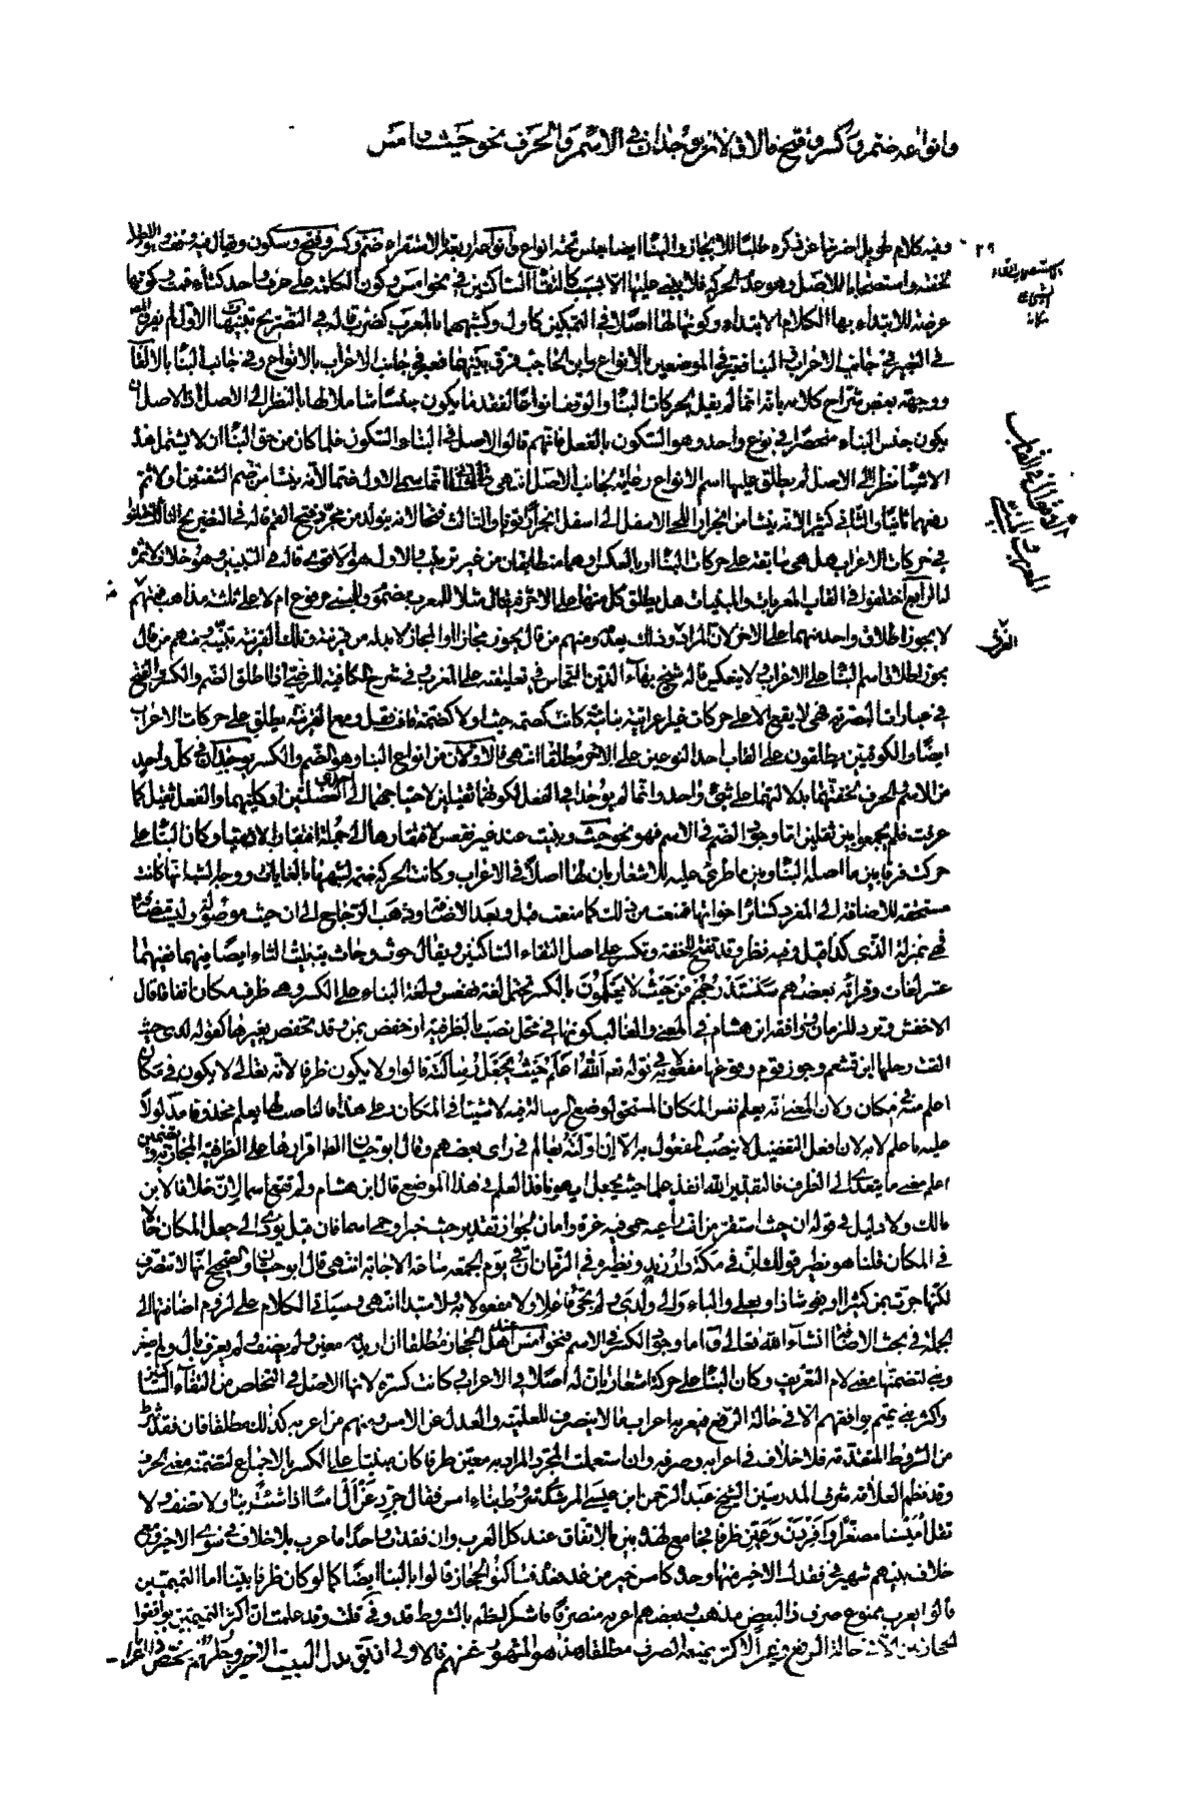 وانواعه ضم وكسر وفتح فالاولان يوجدان في الاسم والحرف نحو حيث وامس
وفيه كلام طويل اضربنا عن ذكره طلبا للايجاز والبنا ايضا جنس تحته انواع وانواعه اربعة بالاستقراء ضم وكسر وفتح وسكون ويقال فيه وقف
لخفته واستصحابا للاصل وهو عدم الحركة فلا يبنى عليها الا بسبب كالتقاء الساكنين في نحو امس وكون الكلمة على حرف واحد كتاء قمت وكونها
عرضة للابتداء بها كلام الابتداء وكونها لها اصلا في التمكين كاول وكشبهها بالمعرب كضرب قاله في التصريح تنبيهات الاول لم يفرق
في التعبير في جانب الاعراب والبنا فعبر في الموضعين بالانواع وابن الحاجب فرق بينهما فعبر في جانب الاعراب بالانواع وفي جانب البنا بالالقاب
ووجهه بعض شراح كلامه بانه انما لم يقل لحركات البنا والوقف انواعا لفقد ما يكون جنسا شاملا لها بالنظر الى الاصل اذ الاصل ان
يكون جنس البناء منحصرا في نوع واحد وهو السكون بالفعل فانهم قالوا الاصل في البناء السكون فلما كان من حق البنا ان لا يشتمل هذه
الاشيا نظرا الى الاصل لم يطلق عليها اسم الانواع رعاية لجانب الاصل انتهى انما سمي الاول ضما لانه ينشا من ضم الشفتين اولا ثم
رفعهما ثانيا والثاني كسرا لانه ينشا من انجرار اللحي الاسفل الى اسفل انجرارا قويا والثالث فتحا لانه يتولد من مجرد فتح الفم قاله في التصريح الثالث اختلفوا
في حركات الاعراب هل هي سابقة على حركات البنا او بالعكس او هما متطابقان من غير ترتيب والاول هو الاقوى قاله في التبيين وهو خلاف لا ثمرة
له الرابع اختلفوا في القاب المعربات والمبنيات هل يطلق كل منها على الاخر فيقال مثلا للمعرب مضموم وللمبني مرفوع ام لا على ثلاثة مذاهب فمنهم
لا يجوز اطلاق واحد منهما على الاخر لان المراد وذلك بعده ومنهم من قال يجوز مجازا والمجاز لا بد له من قرينة وتلك القرينة تبينه ومنهم من قال
يجوز اطلاق اسم البنا على الاعراب ولا ينعكس قاله شيخ بهاء الدين النحاس في تعليقته على المقرب وفي شرح الكافية للرضي اذا اطلق الضم والكسر والفتح
في عبارات البصرية فهي لا يقع الا على حركات غير اعرابية بنائية كانت كضمة حيث او لا كضمة قاف قفل ومع القرينة يطلق على حركات الاعراب
ايضا والكوفيين يطلقون على القاب احد النوعين على الاخر مطلقا انتهى فالاولان من انواع البنا وهو الضم والكسر يوجدان في كل واحد
من الاسم والحرف لخفتهما بدلالتهما على شئ واحد وانما لم يوجدا في الفعل لكونهما ثقيلين لاحتياجهما الى احدى العضلتين او كليهما والفعل ثقيل كما
عرفت فلم يجمعوا بين ثقلين اما وجود الضم في الاسم فهو نحو حيث وبنيت عند غير فقعس لافتقارها الى جملة افتقارا لازما وكان البنا على
حركة فرقا بين ما اصله البنا وبين ما طرى عليه للاشعار بان لها اصلا في الاعراب وكانت الحركة ضمة لشبهها بالغايات ووجه الشبه انها كانت
مستحقة للاضافة الى المفرد كسائر اخواتها فمنعت من ذلك كما منعت قبل وبعد الاضافة وذهب الزجاج الى ان حيث موصولة وليست مضافة
فهي بمنزلة الذي كذا قيل وفيه نظر وقد تفتح للخفة وتكسر على اصل التقاء الساكنين ويقال حوث وحاث بتثليث الثاء ايضا فيهما ففيها
عشر لغات وقراءة بعضهم سنستدرجهم من حيث لا يعلمون بالكسر تحتمل لغة فقعس ولغة البناء على الكسر وهي ظرف مكان اتفاقا قال
الاخفش وترد للزمان ووافقه ابن هشام في المغني والغالب كونها في محل نصب بالظرفية او خفض بمن وقد تخفض بغيرها كقوله لدى حيث
القت رحلها ام قشعم وجوز قوم وقوعها مفعولا به في قوله تعالى الله اعلم حيث يجعل رسالته قالوا ولا يكون ظرفا لانه تعالى لا يكون في مكان
اعلم منه في مكان ولان المعنى انه يعلم نفس المكان المستحق لوضع الرسالة فيه لا شيئا في المكان وعلى هذا فالناصب لها يعلم محذوفا مدلولا
عليه باعلم لا به لان افعل التفضيل لا ينصب المفعول به الا ان اولته بعالم في راى بعضهم وقال ابو حيان الظاهر اقرارها على الظرفية المجازية وتضمين
اعلم معنى ما يتعدى الى الظرف فالتقدير الله انفذ علما حيث يجعل اي هو نافذ العلم في هذا الموضع قال ابن هشام ولم تقع اسما لان خلافا لابن
مالك ولا دليل في قوله ان حيث استقر من انت راعيه حمى فيه عزة وامان لجواز تقدير حيث خبرا وحمى اسما فان قيل يؤدي الى جعل المكان حالا
في المكان قلنا هو نظير قولك ان في مكة دار زيد ونظيره في الزمان ان في يوم الجمعة ساعة الاجابة انتهى قال ابو حيان والصحيح انها لا تتصرف
لكنها جرت بمن كثيرا وبفي شاذا وبعلى والباء والى ولدى ولم تجئ فاعلا ولا مفعولا به ولا مبتدا انتهى وسياتي الكلام على لزوم اضافتها الى
الجملة في بحث الاضافة انشاء الله تعالى واما وجود الكسر في الاسم فنحو امس عند اهل الحجاز مطلقا ان اريد به معين ولم يضف ولم يعرف بال ولم يصغر
وبني لتضمنها معنى لام التعريف وكان البنا على حركة اشعارا بان له اصلا في الاعراب وكانت كسرة لانها الاصل في التخلص من التقاء الساكنين
واكثر بني تميم يوافقهم الا في حالة الرفع فيعربه اعراب ما لا ينصرف للعلمية والعدل عن الامس ومنهم من اعربه كذلك مطلقا فان فقد شرط
من الشروط المتقدمة فلا خلاف في اعرابه وصرفه وان استعملت المجرد المراد به معين ظرفا كان مبنيا على الكسر بالاجماع لتضمنه معنى الحرف
وقد نظم العلامة شرف المدرسين الشيخ عبد الرحمن ابن عيسى المرشدي شروط بناء امس فقال جرد عن ال امسا اذا شئت بنا ولا تضفه ولا
تقل اميسا مصغرا وافردن وعين ظرفا لجامع لهذه بني بالاتفاق عند كل العرب وان فقدت واحدا ما عرب بلا خلاف في سوى الاخير وفي
خلاف بينهم شهير في فقدك الاخير منها وحده كامس خير من غد فعنده فساكنوا الحجاز قالوا بالبنا ايضا كما لو كان ظرفا بينا اما التميميين
قالوا يعرب ممنوع صرف ذا لبعض مذهب وبعضهم اعربه منصرفا فاشكر لنظم بالشروط قد وفى قلت وقد علمت ان اكثر التميميين يوافقوا
الحجازيين الا في حالة الرفع وغير الاكثر يمنعه الصرف مطلقا وهذا هو المشهور عنهم فالاولى